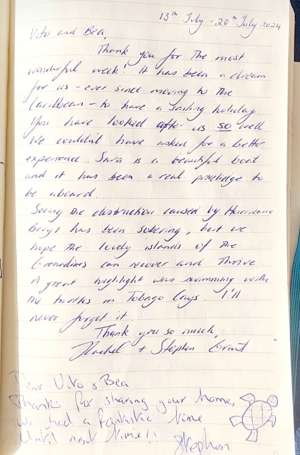 13th July - 20th July 2024
Vito and Bea,
Thank you for the most
wonderful week! It has been a dream
for us - ever since moving to the
Caribbean - to have a sailing holiday
You have looked after us so well
We couldn't have asked for a better
experience. is a beautiful boat
and it has been a real priviledge to
be aboard.
Seeing the destruction caused by Hurricane
Beryl has been sobering, but we
hope the lovely islands of the
Grenadines can recover and thrive
A great highlight was swimming with
the turtles in Tobago Cays. I'll
never forget it.
Thank you so much,
Rachel + Stephen
Dear Vito & Bea
Thanks for sharing your home,
we had a fantastic time
Until next time!!
Stephen